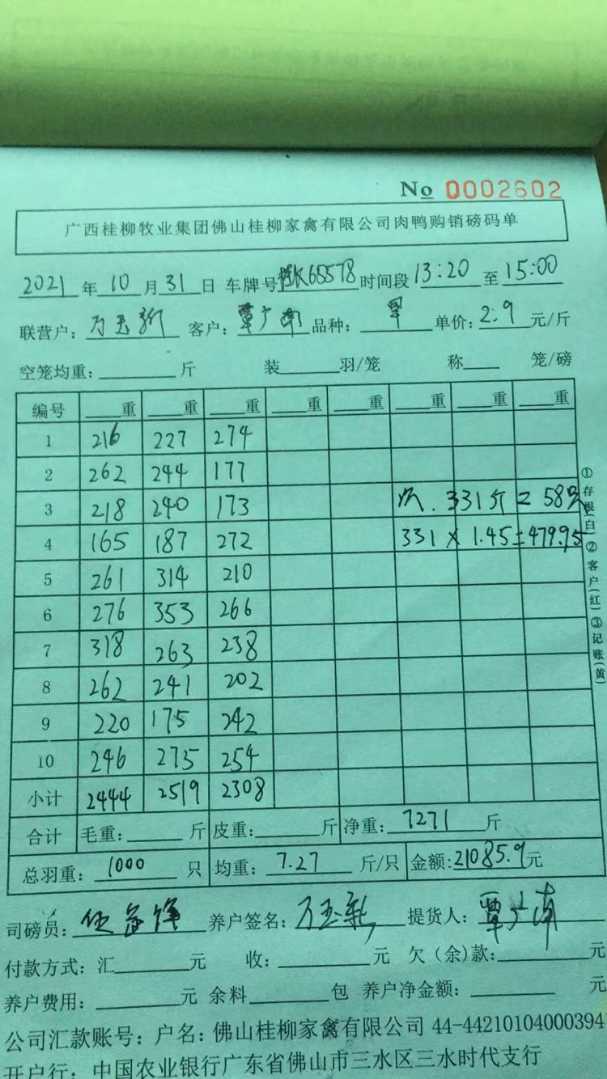 No 0002602
广西桂柳牧业集团佛山桂柳家禽有限公司肉鸭购销磅码单
2021 年 10 月 31 日 车牌号 K65578 时间段 13:20 至 15:00
联营户: 万玉新 客户: 覃广南 品种: 单价: 2.9 元/斤
空笼均重: 斤 装 羽/笼 称 笼/磅
编号 重 重 重 重 重 重 重 重
1 216 227 274
2 262 244 177
3 218 240 173 331斤 = 58只
4 165 187 272 331 × 1.45=479.95
5 261 314 210
6 276 353 266
7 318 263 238
8 262 241 202
9 220 175 242
10 246 275 254
小计 2444 2519 2308
合计 毛重: 斤 皮重: 斤 净重: 7271 斤
总羽重: 1000 只 均重: 7.27 斤/只 金额: 21085.9 元
司磅员: 养户签名: 万玉新 提货人: 覃广南
付款方式: 汇 元 收: 元 欠(余)款: 元
养户费用: 元 余料 包 养户净金额: 元
公司汇款账号: 户名: 佛山桂柳家禽有限公司 44-44210104000394
开户行: 中国农业银行广东省佛山市三水区三水时代支行
①存根(白)②客户(红)③记账(黄)